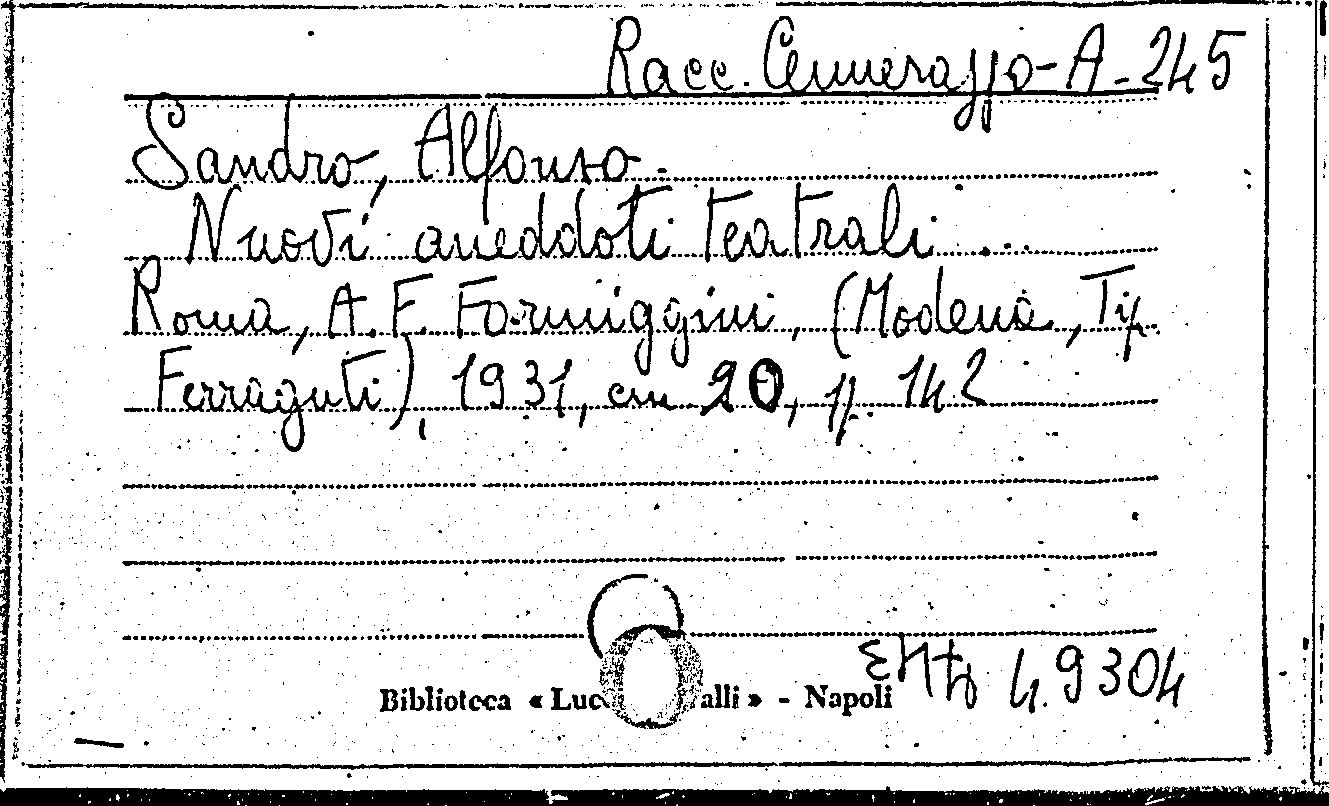 Racc. Cennerazzo-A-245
Sandro, Alfonso.
Nuovi aneddoti teatrali...
Roma, A. F. Formiggini, (Modena, Tip.
Ferraguti), 1931, cm 20, p. 142
4.9304
Biblioteca « Luc alli » - Napoli